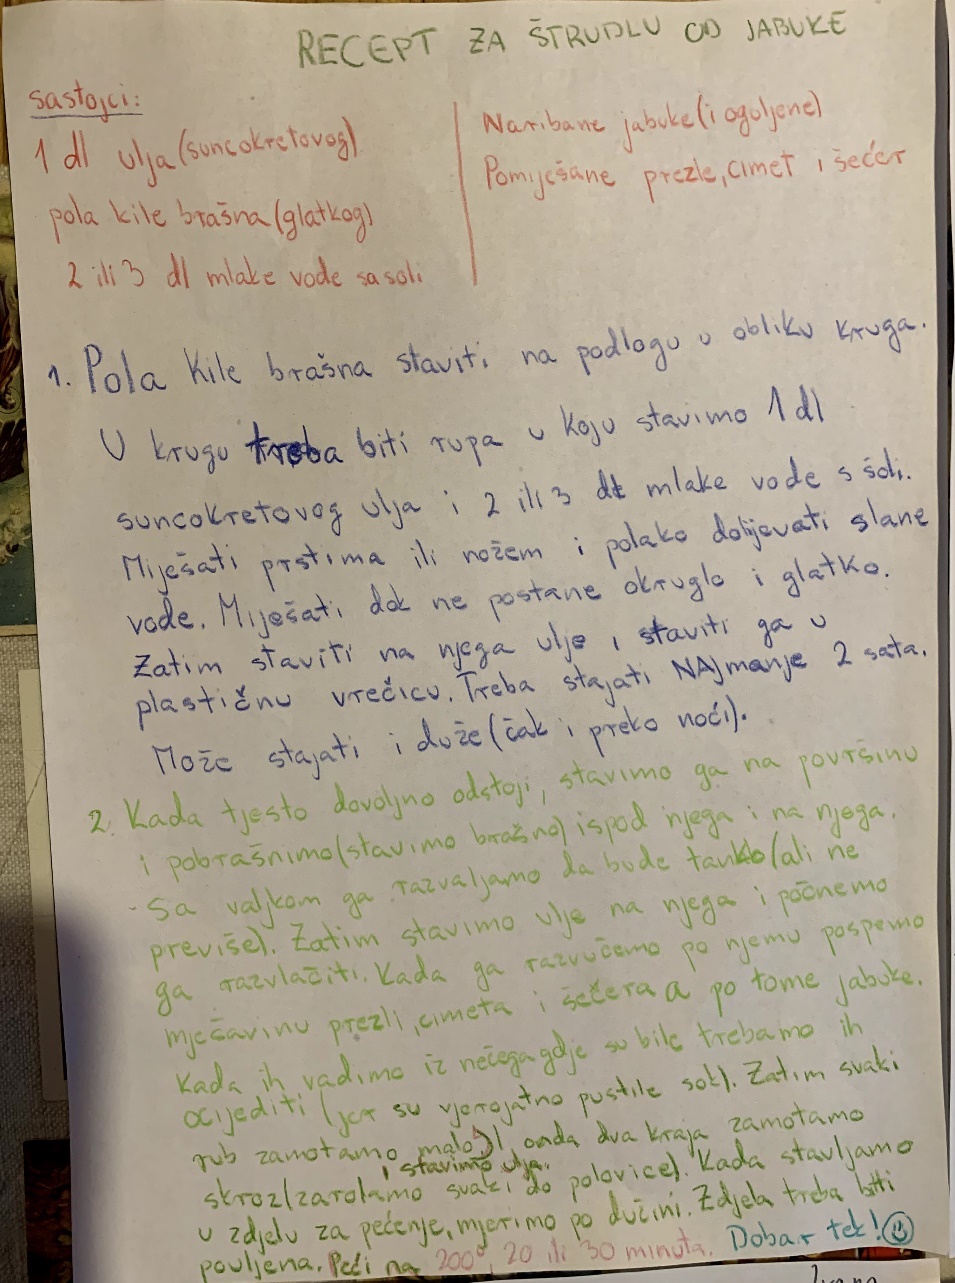 RECEPT ZA ŠTRUDLU OD JABUKE
sastojci:
1 dl ulja (suncokretovog)
pola kile brašna (glatkog)
2 ili 3 dl mlake vode sa soli
Naribane jabuke (i oguljene)
Pomiješane prezle, cimet i šećer
1. Pola kile brašna staviti na podlogu u obliku kruga.
U krugu treba biti rupa u koju stavimo 1 dl
suncokretovog ulja i 2 ili 3 dl mlake vode s šoli.
Miješati prstima ili nožem i polako dolijevati slane
vode. Miješati dok ne postane okruglo i glatko.
Zatim staviti na njega ulje i staviti ga u
plastičnu vrećicu. Treba stajati NAjmanje 2 sata.
Može stajati i duže (čak i preko noći).
2. Kada tjesto dovoljno odstoji, stavimo ga na površinu
i pobrašnimo (stavimo brašno) ispod njega i na njega.
Sa valjkom ga razvaljamo da bude tanko (ali ne
previše). Zatim stavimo ulje na njega i počnemo
ga razvlačiti. Kada ga razvučemo po njemu pospemo
mješavinu prezli, cimeta i šećera a po tome jabuke.
Kada ih vadimo iz nečega gdje su bile trebamo ih
ocijediti (jer su vjerojatno pustile sok). Zatim svaki
rub zamotamo malo) I onda dva kraja zamotamo
i stavimo ulja.
skroz (zarolamo svaki do polovice). Kada stavljamo
u zdjelu za pećenje, mjerimo po dužini. Zdjela treba biti
pouljena. Peći na 200°, 20 ili 30 minuta. Dobar tek!